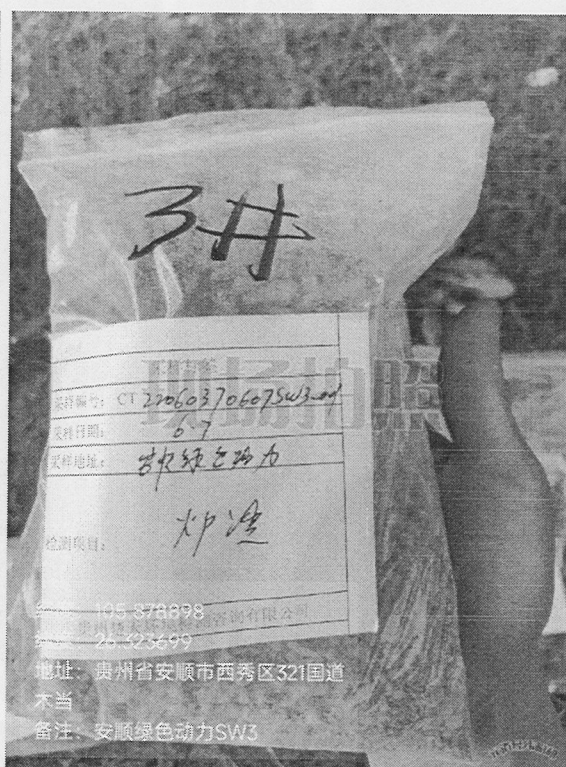 3#
现场拍照
采样编号: CT 22060370607SW3
采样日期: 6.7
采样地址: 绿色动力
检测项目: 炉渣
105.878898
26.323699
咨询有限公司
地址: 贵州省安顺市西秀区321国道
木当
备注: 安顺绿色动力SW3